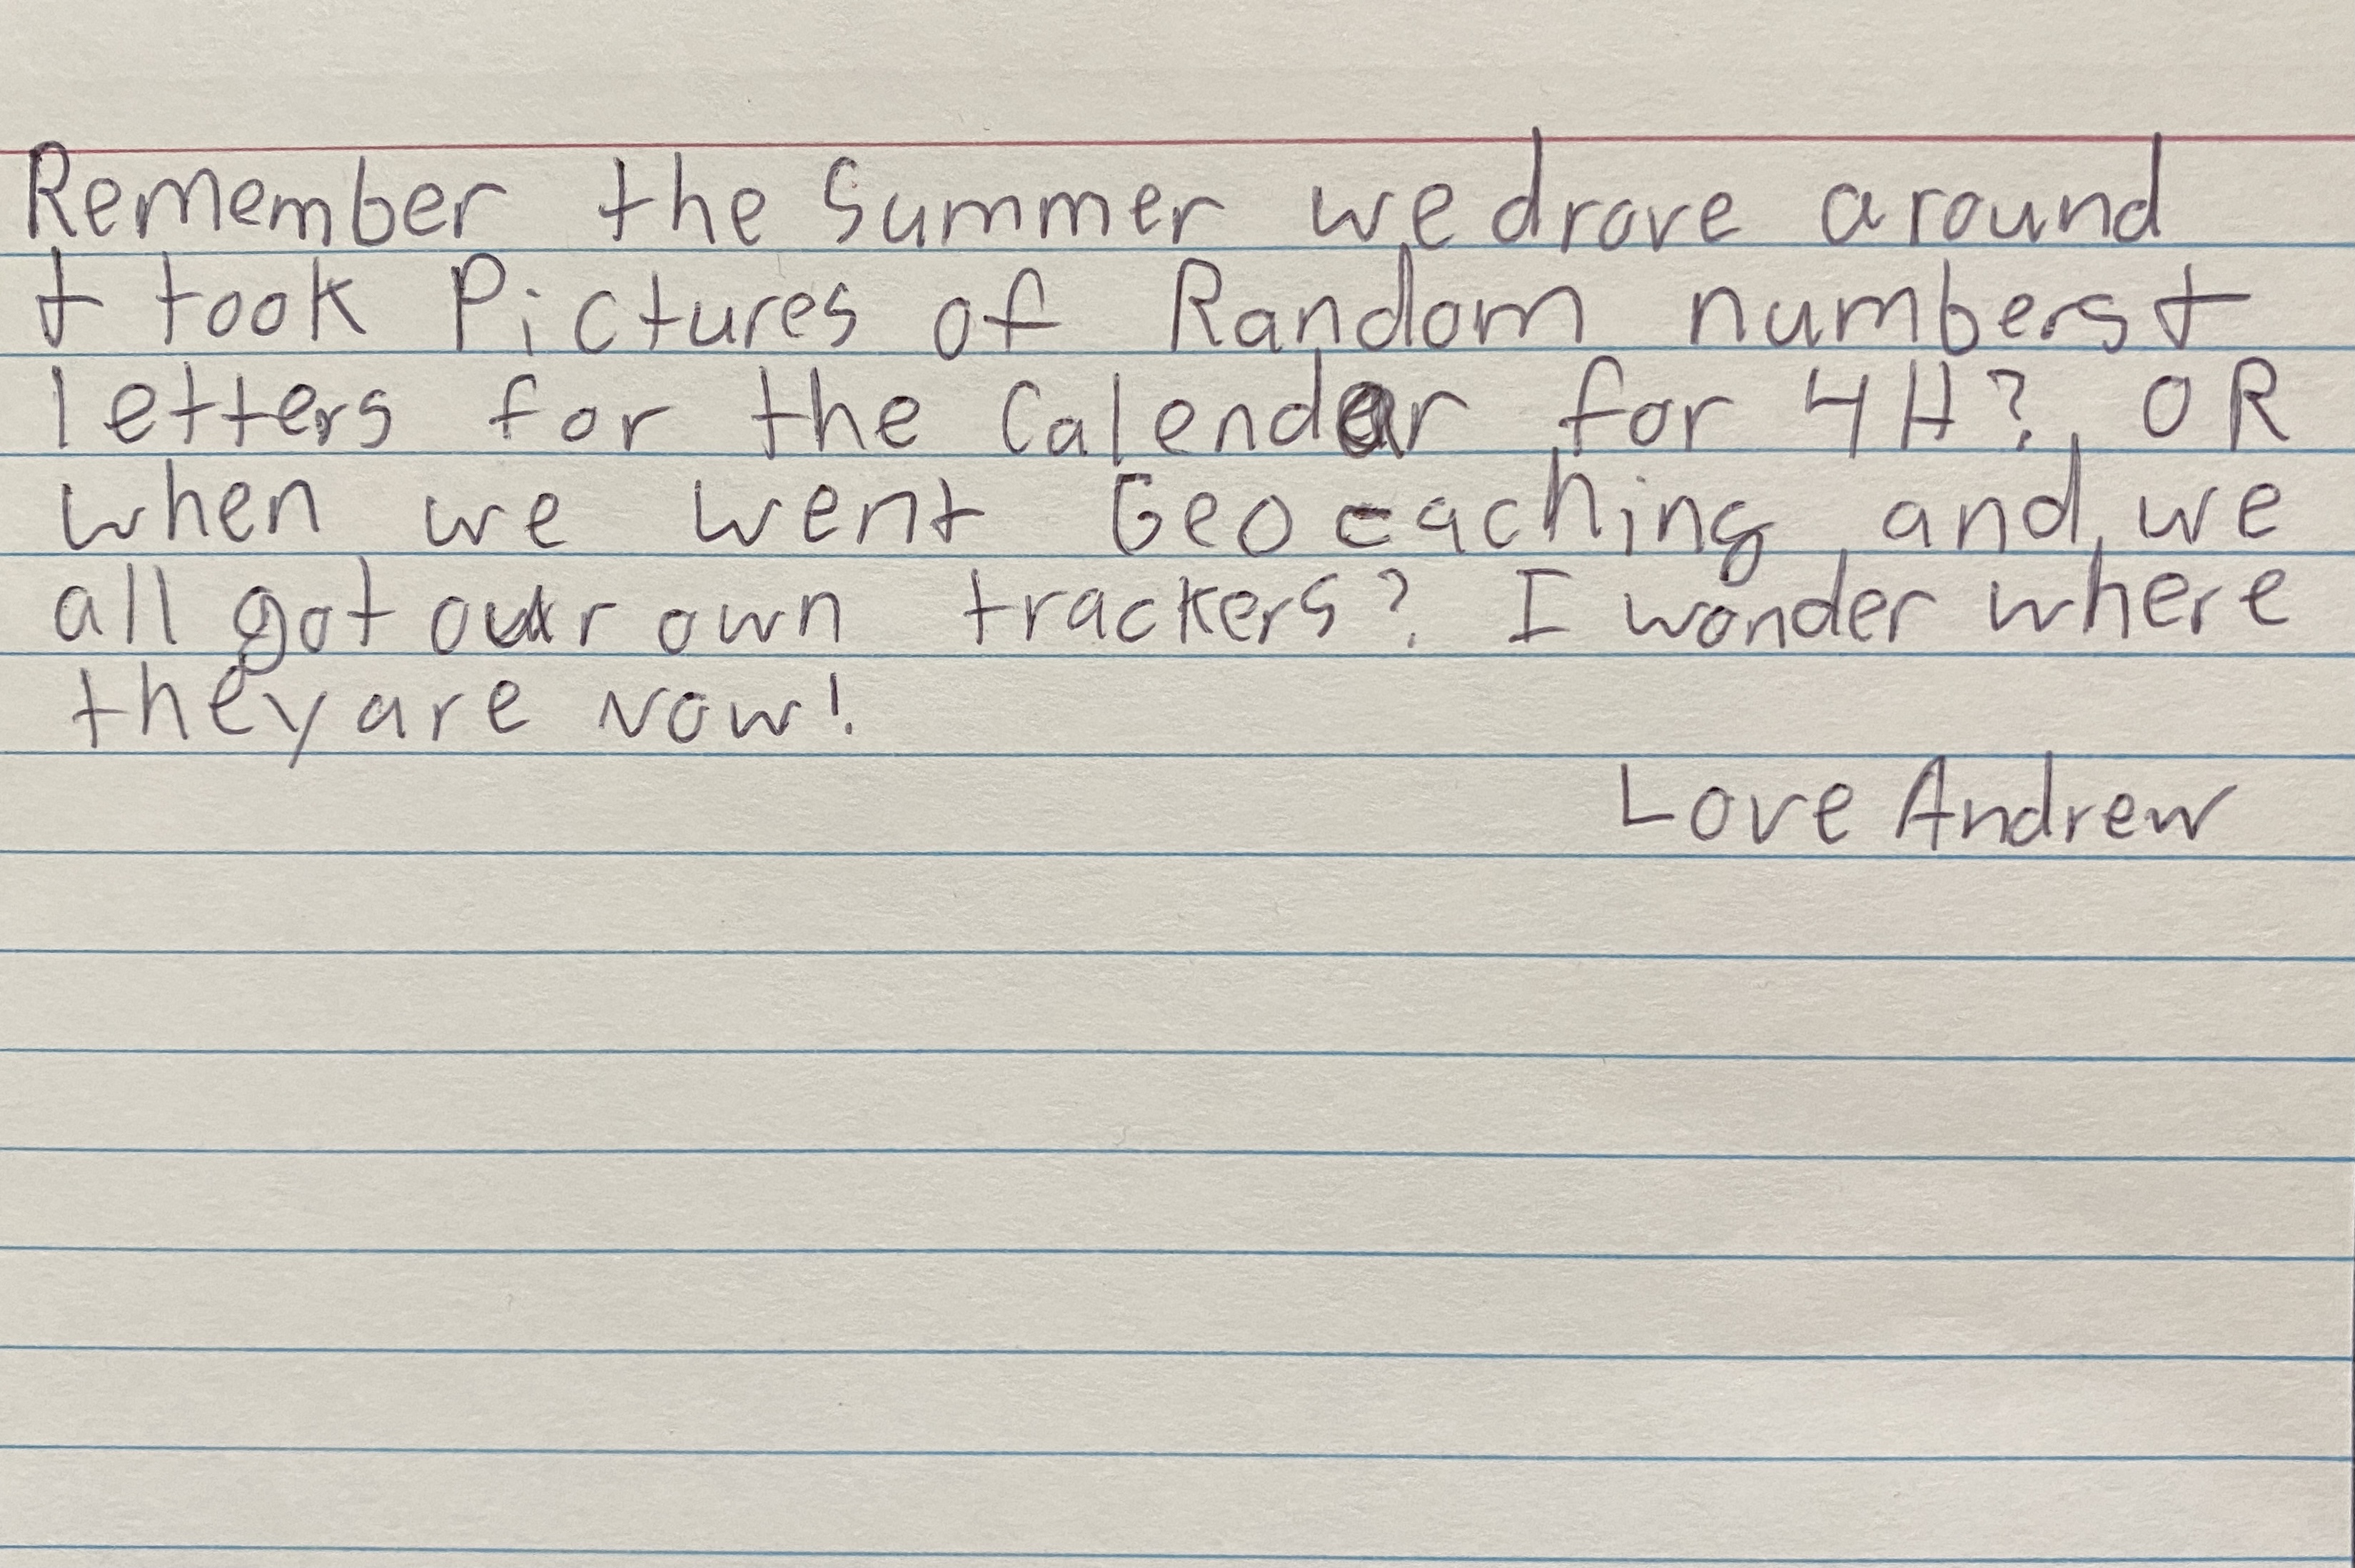 Remember the Summer we drove around
+ took Pictures of Random numbers +
letters for the Calendar for 4H? OR
when we went Geocaching and we
all got our own trackers? I wonder where
they are now!
Love Andrew